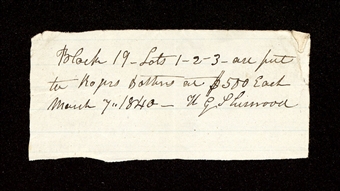 Block 19 - Lots 1-2-3 - are put
to Rogers at $500 Each
March 7th 1840 - H G Sherwood